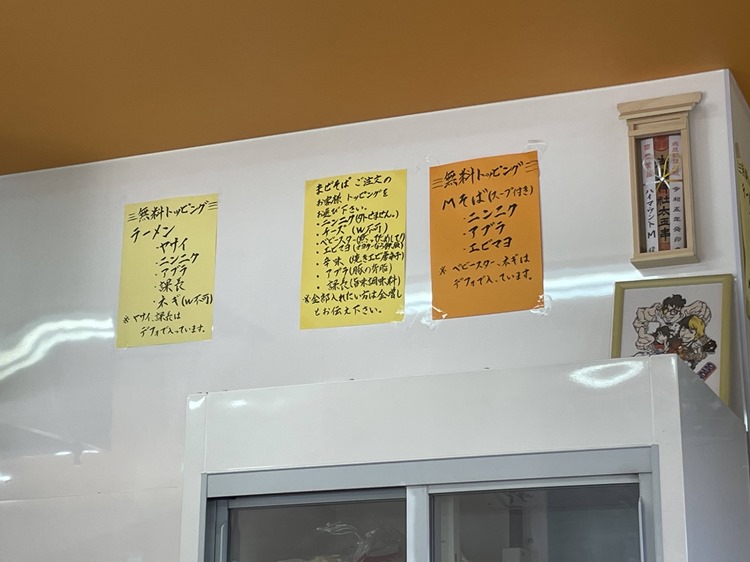 三無料トッピング三
ラーメン
・ヤサイ
・ニンニク
・アブラ
・課長
・ネギ(W不可)
※ヤサイ、課長は
デフォで入っています。
まぜそばご注文の
お客様トッピングを
お選び下さい。
・ニンニク
・チーズ(W不可)
・ベビースター
・エビマヨ
・辛味(焼きエビ唐辛子)
・アブラ(豚の背脂)
・課長(旨味調味料)
※全部入れたい方は全増し
とお伝え下さい。
三無料トッピング三
Mそば(スープ付き)
・ニンニク
・アブラ
・エビマヨ
※ベビースター、ネギは
デフォで入っています。
ハイマウントM 様